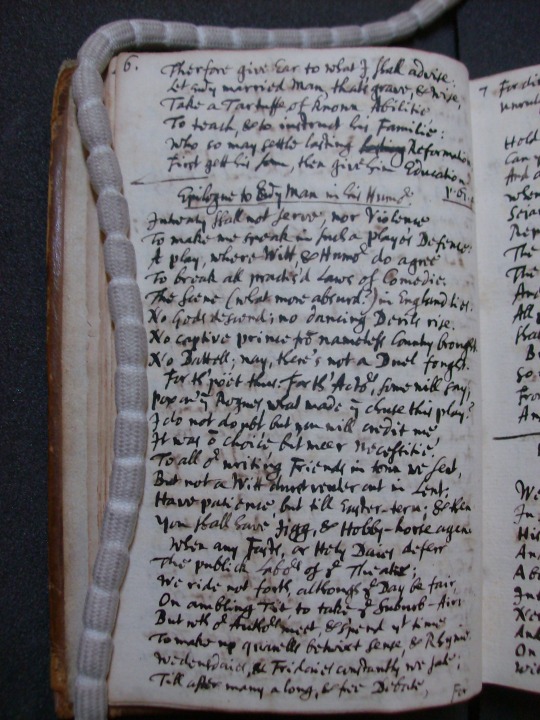 6.
Therfore give Ear to what I shall advise:
Let evy married Man, thats grave, & wise,
Take a Tartuffe of known Abilitie
To teach, & to instruct his Familie:
Who so may settle lasting Reformation
First gett his Son, then give him Education.
Epilogue to Evy Man in his Humor
p. 67.
Intreaty shall not serve, nor Violence
To make me speak in such a playes Defence.
A play, where Witt, & Humr do agree
To break all practis'd Laws of Comedie.
The Scene (what more absurd?) in England lies:
No Gods descend; no dancing Devils rise.
No captive prince from nameless Country brought
No Battell; nay, there's not a Duel fought.
For th' poet thus, for th' Actors, some will say,
pox Rogues what made ye chuse this play?
I do not doubt but you will credit me
It was o choice but meer Necessitie,
To all or writing Friends in town we sent,
But not a Witt durst venter out in Lent.
Have patience, but till Easter-term; & then
You shall have Jigg, & Hobby-horse agen.
When any Fasts, or Holy Daies deferr
The publick Labors of ye Theater:
We ride not forth, although ye Day be fair,
On ambling Tit to take ye Suburb-Aire
But wth or Authors meet & spend yt time
To make up quarells betwixt sense, & Rhyme
Wedensdaies, & Fridaies constantly we sate:
Till after many a long, & free Debate,
For
7